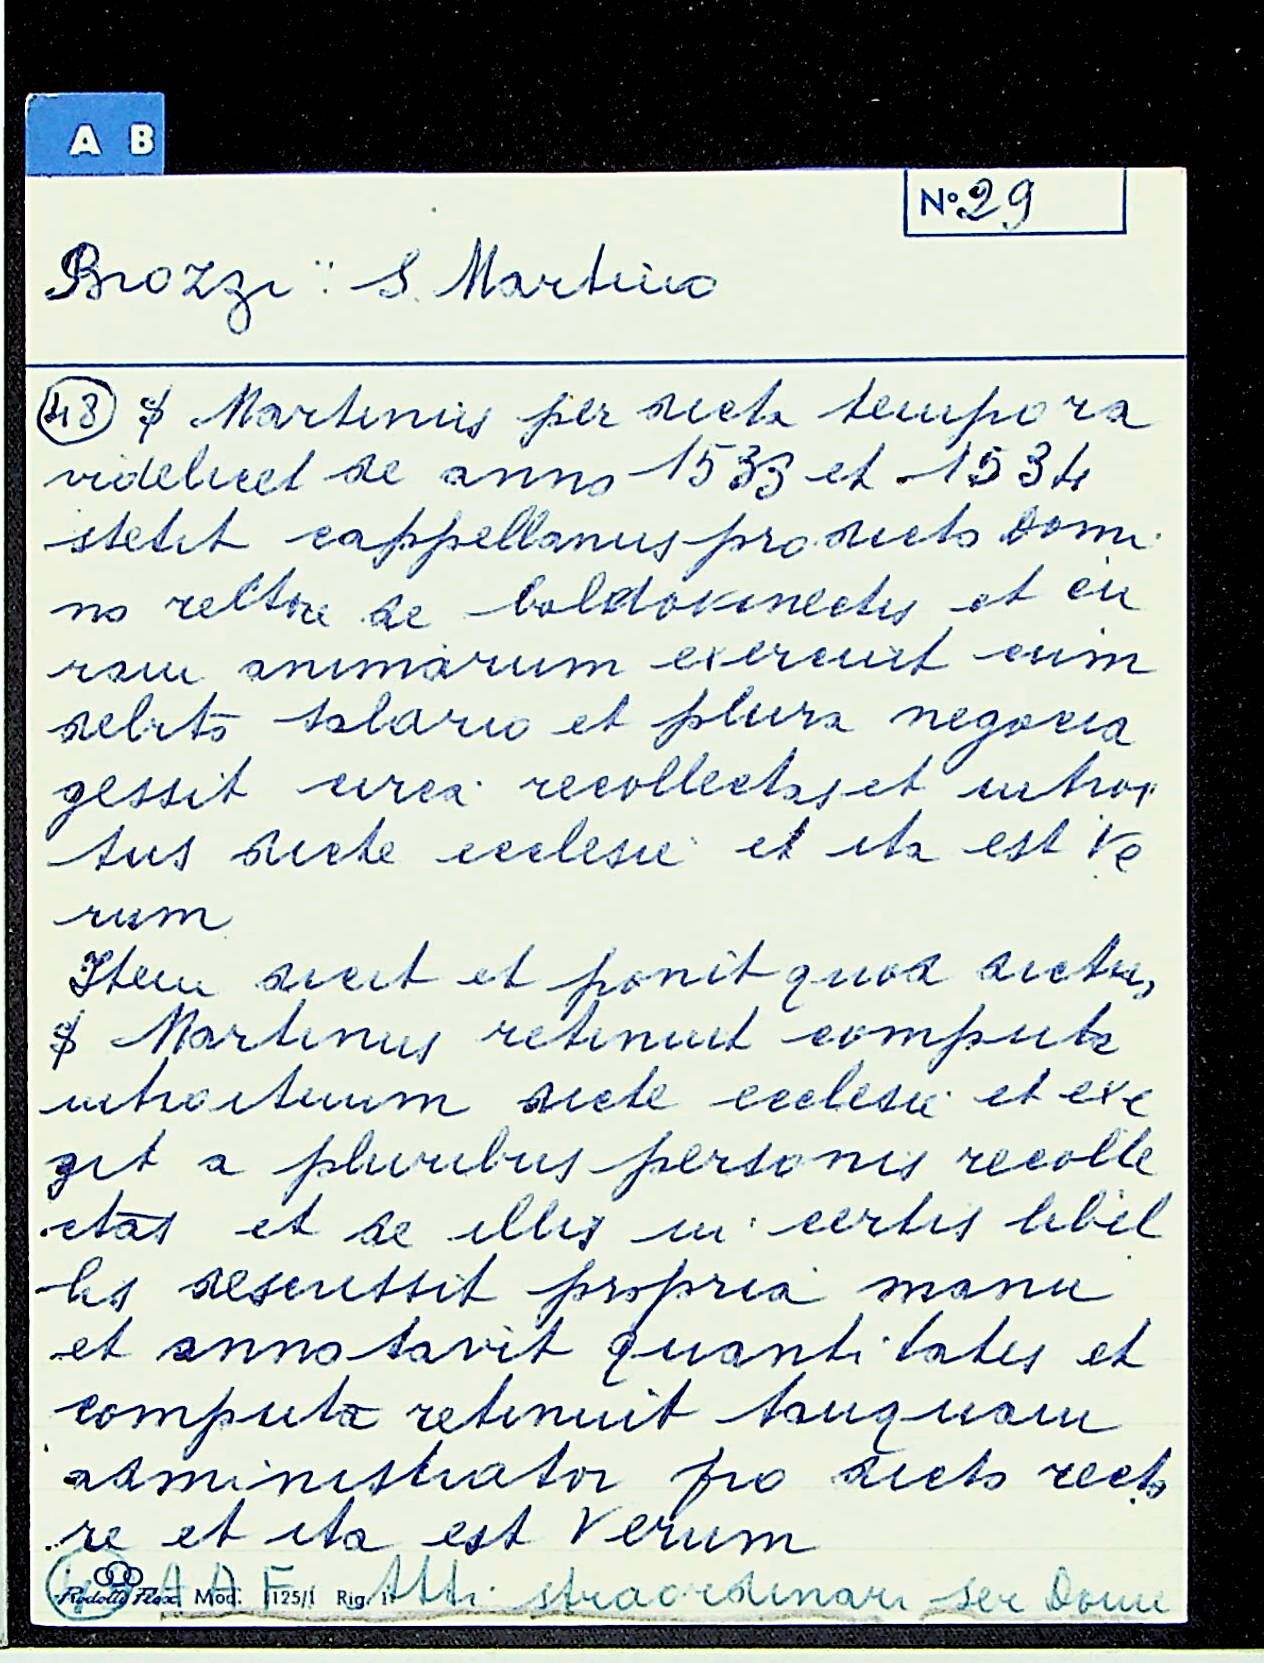 A B
N° 29
Brozzi: S. Martino
(48) S Martinus per dicta tempora
videlicet de anno 1533 et 1534
stetit cappellanus pro dicto domi
no rettore de boldovinectis et cu
ram animarum exercuit cum
debito salario et plura negocia
gessit circa recollectas et introy
tus dicte ecclesie et ita est ve
rum
Item dicit et ponit quod dictus
S Martinus retinuit computa
introituum dicte ecclesie et exe
git a pluribus personis recolle
ctas et de illis in certis libel
lis descrissit propria manu
et annotavit quantitates et
computa retinuit tanquam
administrator pro dicto recto
re et ita est verum
Mod. 125/1 Rig. 1
A A F Atti straordinari ser Dome